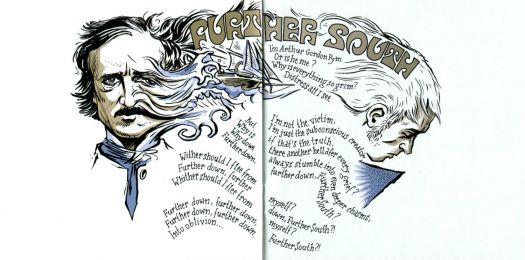 FURTHER SOUTH
I'm Arthur Gordon Pym
Or is he me?
Why is everything so grim?
Distress all I see
But
Why is
Why down
Further down.
Wither should I flee from
Further down, further
Whither should I flee from
Further down, further down,
Further down, further down
Into oblivion...
I'm not the victim,
I'm just the subconscious creator
if that's the truth,
there another hell after every grief?
always stumble into even deeper chasms,
further down,
Further South?
myself?
down, Further South?!
myself?
Further South?!